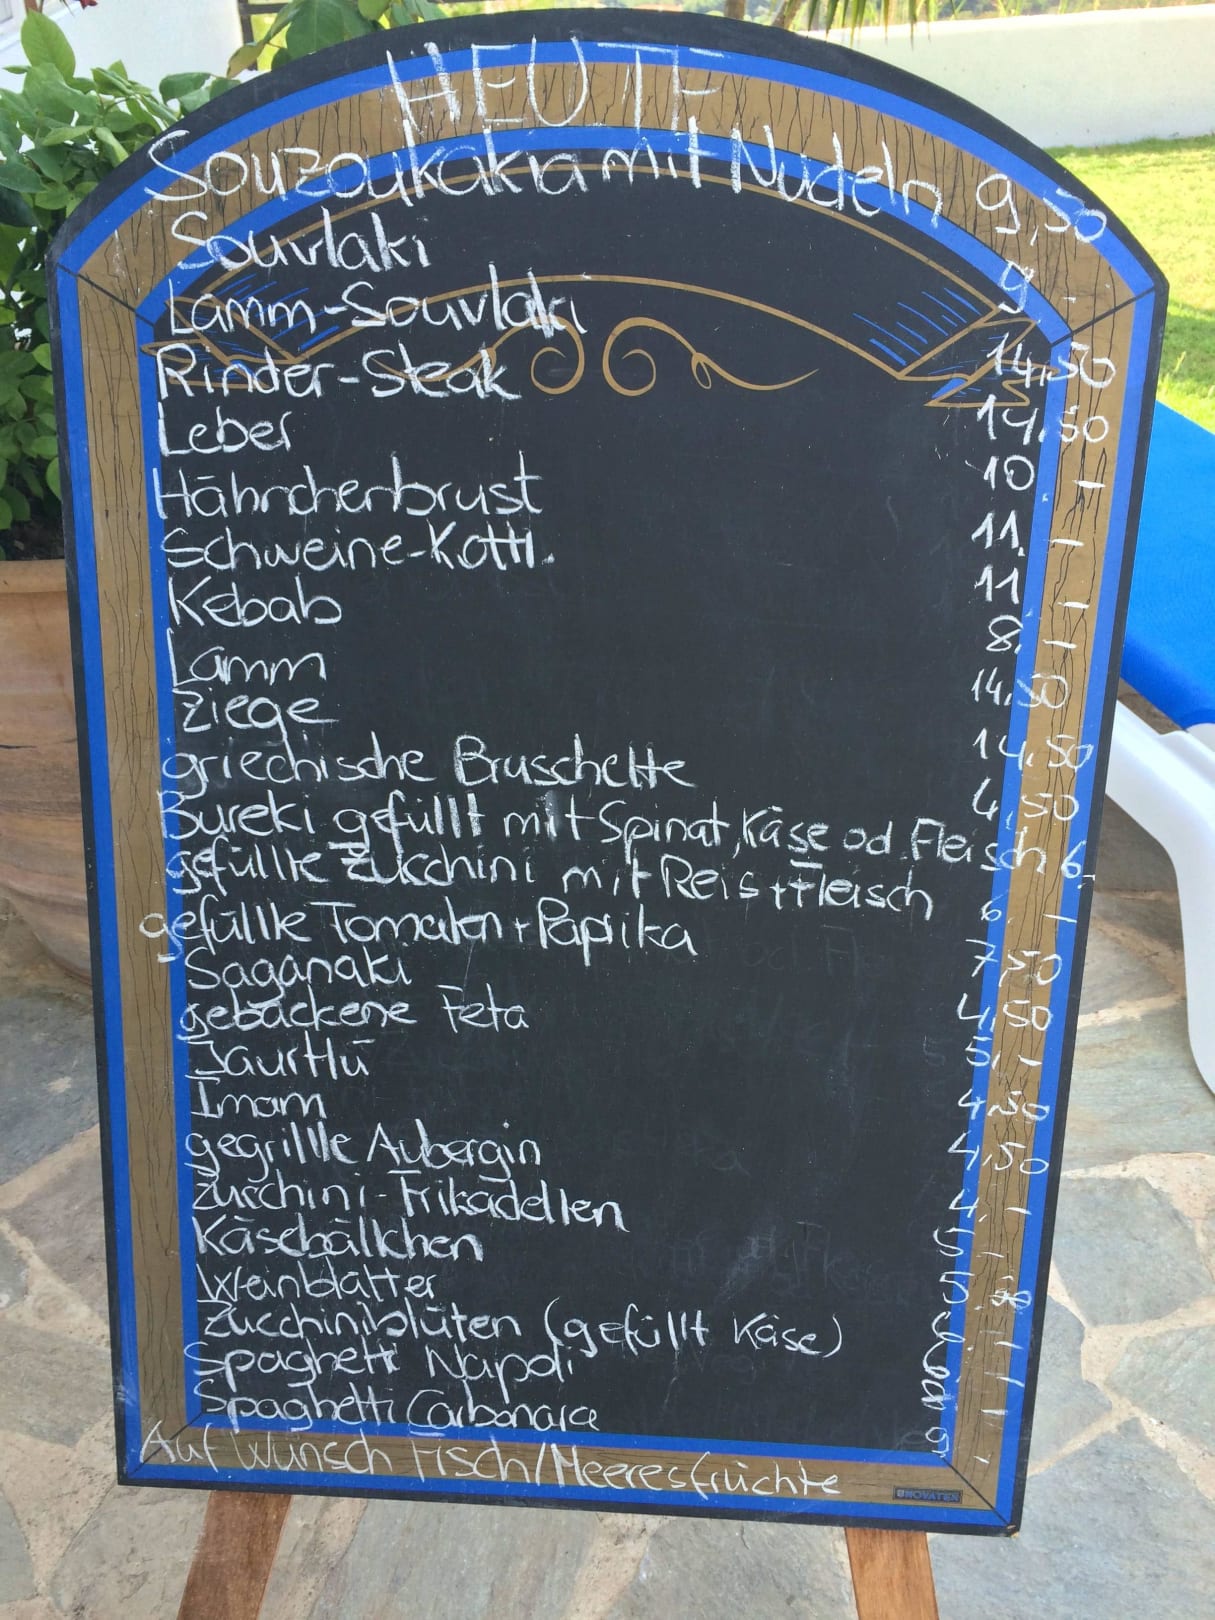 HEUTE
Souzoukakia mit Nudeln 9,50
Souvlaki 9.-
Lamm-Souvlaki 14,50
Rinder-Steak 14.50
Leber 10.-
Hähnchenbrust 11.-
Schweine-Kottl. 11.-
Kebab 8.-
Lamm 14.50
Ziege 14,50
griechische Bruschette 4,50
Bureki gefüllt mit Spinat, Käse od. Fleisch 6.-
gefüllte Zucchini mit Reis + Fleisch 6.-
gefüllte Tomaten + Paprika 7,50
Saganaki 4,50
gebackene Feta 5,-
Jaurtlu 4,50
Imam 4,50
gegrillte Aubergin 4.-
Zucchini-Frikadellen 5.-
Käsebällchen 5.
Weinblätter
Zucchiniblüten (gefüllt Käse)
Spaghetti Napoli
Spaghetti Carbonara 9.-
Auf Wunsch Fisch/Meeresfrüchte
NOVATEX